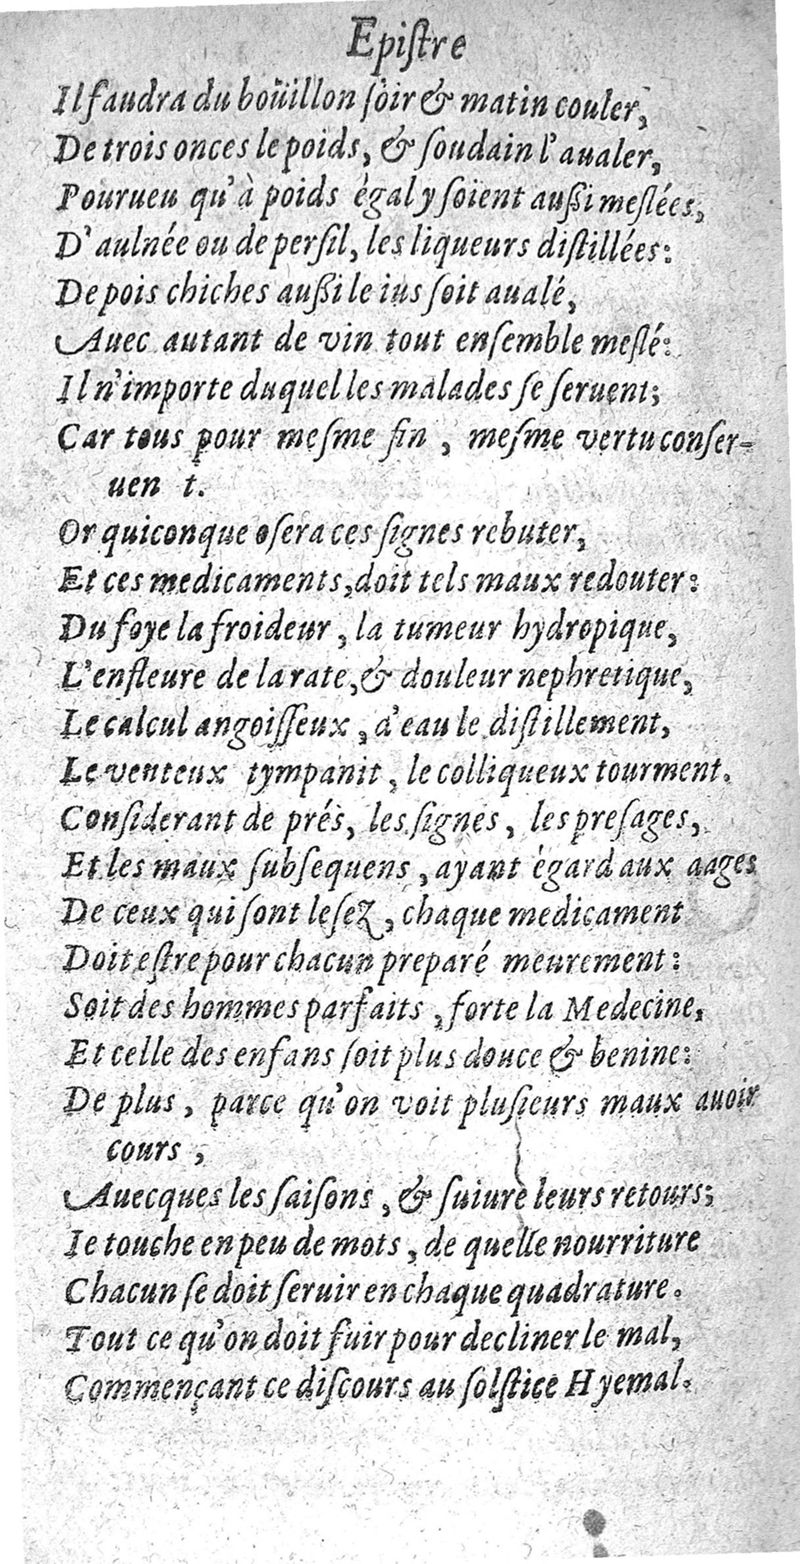 Epiſtre
Il faudra du boüillon ſoir & matin couler,
De trois onces le poids, & ſoudain l'aualer,
Pourueu qu'à poids ègal y ſoïent außi meſlées,
D'aulnée ou de perſil, les liqueurs diſtillées:
De pois chiches außi le ius ſoit aualé,
Auec autant de vin tout enſemble meſlé:
Il n'importe duquel les malades ſe ſeruent;
Car tous pour meſme fin , meſme vertu conſer-
uen t.
Or quiconque oſera ces ſignes rebuter,
Et ces medicaments,doit tels maux redouter:
Du foye la froideur , la tumeur hydropique,
L'enfleure de la rate,& douleur nephretique,
Le calcul angoiſſeux , d'eau le diſtillement,
Le venteux tympanit , le colliqueux tourment.
Conſiderant de prés, les ſignes , les preſages,
Et les maux ſubſequens , ayant ègard aux aages
De ceux qui ſont leſeZ , chaque medicament
Doit eſtre pour chacun preparé meurement:
Soit des hommes parfaits , forte la Medecine,
Et celle des enfans ſoit plus douce & benine:
De plus , parce qu'on voit pluſieurs maux auoir
cours ,
Auecques les ſaiſons , & ſuiure leurs retours;
Ie touche en peu de mots , de quelle nourriture
Chacun ſe doit ſeruir en chaque quadrature.
Tout ce qu'on doit fuir pour decliner le mal,
Commençant ce diſcours au ſolſtice Hyemal.